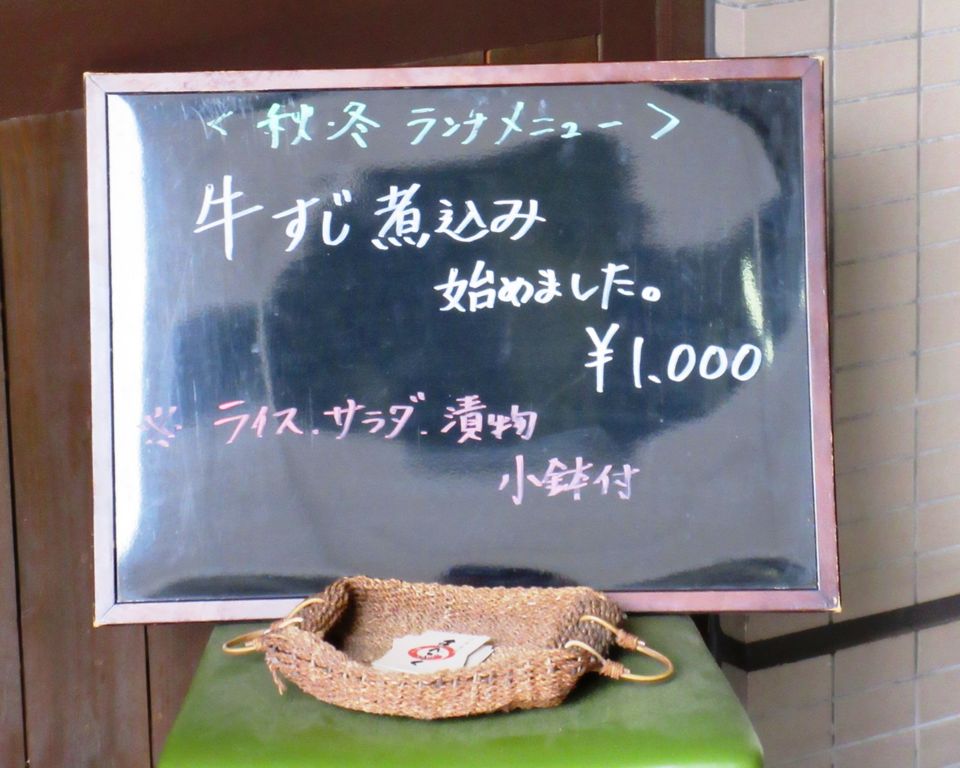 ＜秋・冬 ランチメニュー＞
牛すじ煮込み
始めました。
¥1.000
※ ライス．サラダ．漬物
小鉢付